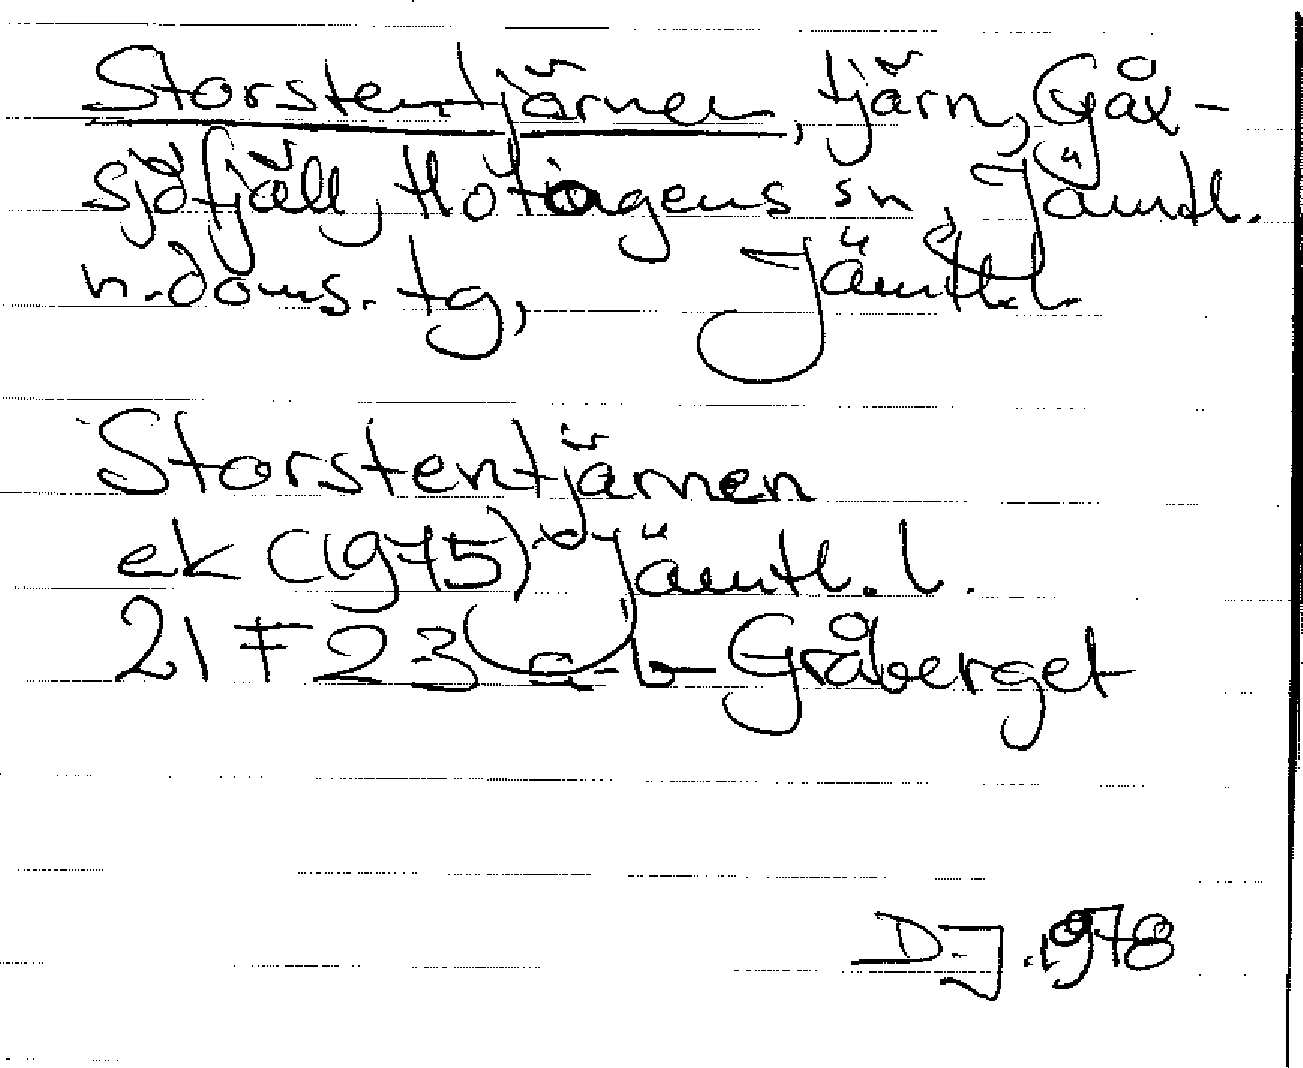 Storstentjärnen, tjärn, Gåx-
sjöfjäll, Hotagens sn, Jämtl.
n. doms. tg, Jämtl. l.
Storstentjärnen
ek (1975) Jämtl. l.
21 F 23 a-b Gråberget
D.J. 1978